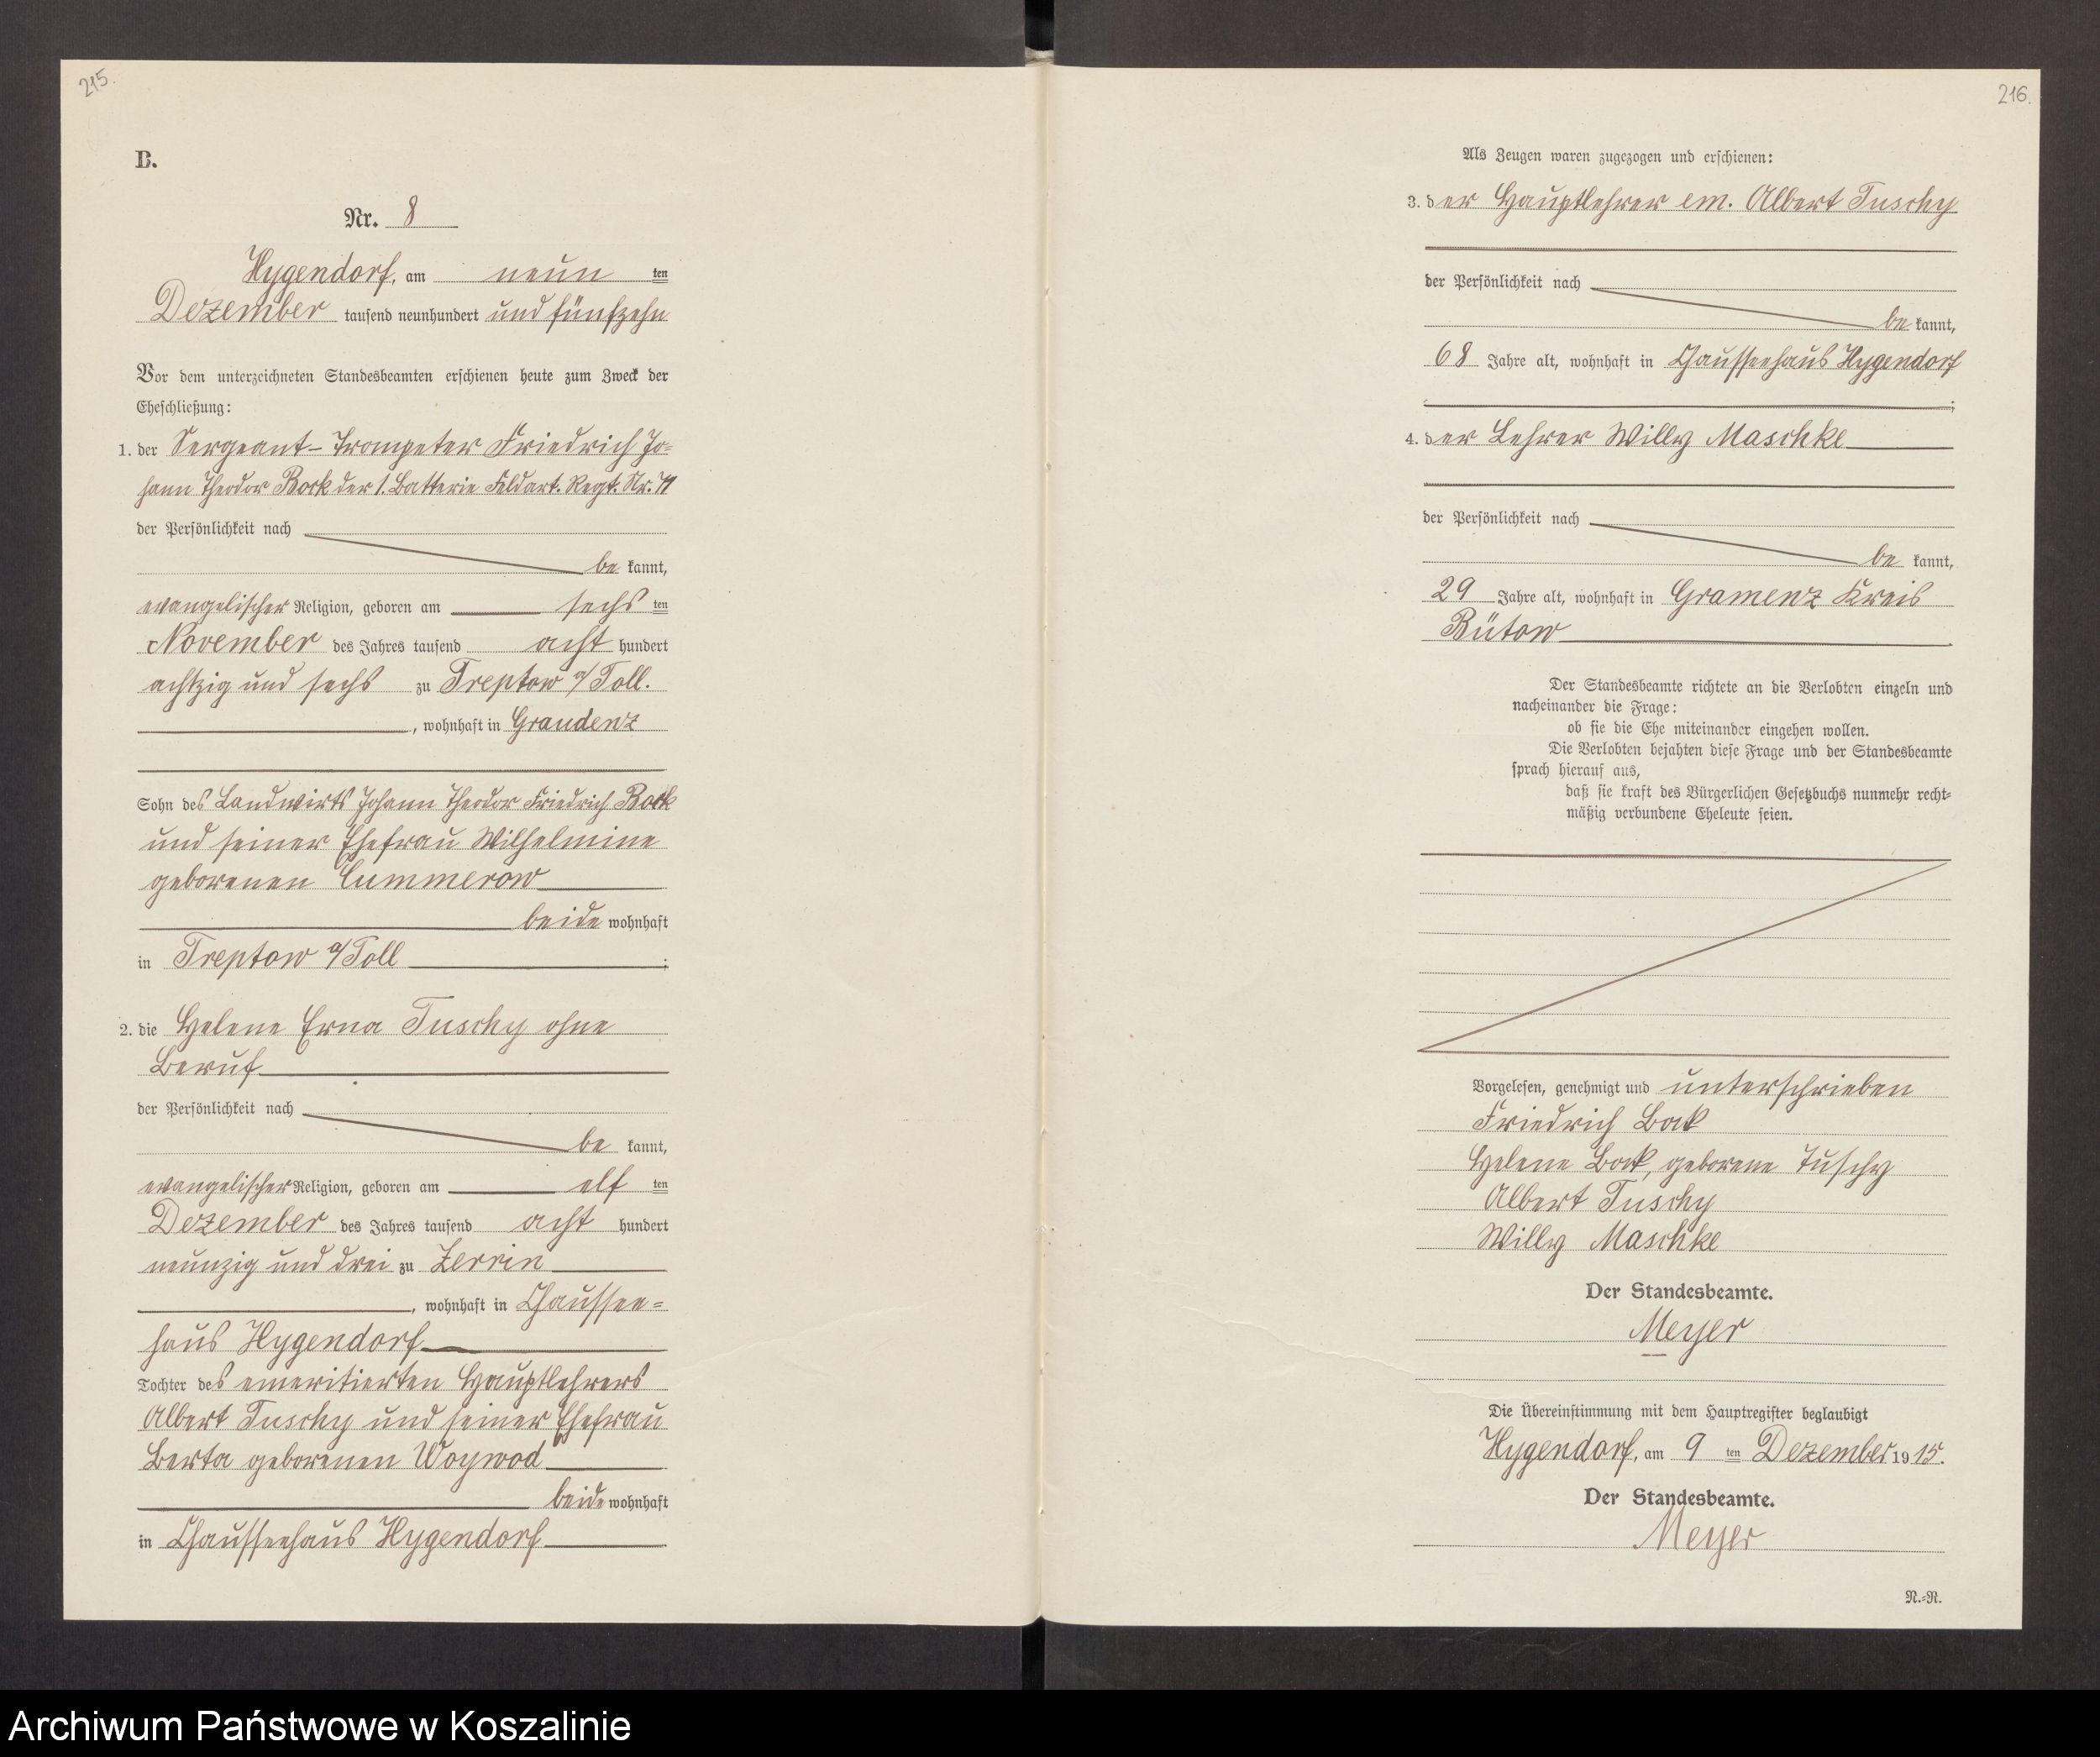 215.
B.
Nr. 8
Hygendorf, am neun ten
Dezember tausend neunhundert und fünfzehn
Vor dem unterzeichneten Standesbeamten erschienen heute zum Zweck der
Eheschließung:
1. der Sergeant-Trompeter Friedrich Jo-
hann Theodor Bock der 1. Batterie Feldart. Regt. Nr. 71
der Persönlichkeit nach
be kannt,
evangelischer Religion, geboren am sechs ten
November des Jahres tausend acht hundert
achtzig und sechs zu Treptow a/ Toll.
, wohnhaft in Graudenz
Sohn des Landwirts Johann Theodor Friedrich Bock
und seiner Ehefrau Wilhelmine
geborenen Cummerow
beide wohnhaft
in Treptow a/Toll ;
2. die Helene Erna Tuschy ohne
Beruf
der Persönlichkeit nach
be kannt,
evangelischer Religion, geboren am elf ten
Dezember des Jahres tausend acht hundert
neunzig und drei zu Zerrin
, wohnhaft in Chaussee-
haus Hygendorf
Tochter des emeritierten Hauptlehrers
Albert Tuschy und seiner Ehefrau
Berta geborenen Woywod
beide wohnhaft
in Chausseehaus Hygendorf
216.
Als Zeugen waren zugezogen und erschienen:
3. der Hauptlehrer em. Albert Tuschy
der Persönlichkeit nach
be kannt,
68 Jahre alt, wohnhaft in Chausseehaus Hygendorf
;
4. der Lehrer Willy Maschke
der Persönlichkeit nach
be kannt,
29 Jahre alt, wohnhaft in Gramenz Kreis
Bütow .
Der Standesbeamte richtete an die Verlobten einzeln und
nacheinander die Frage:
ob sie die Ehe miteinander eingehen wollen.
Die Verlobten bejahten diese Frage und der Standesbeamte
sprach hierauf aus,
daß sie kraft des Bürgerlichen Gesetzbuchs nunmehr recht-
mäßig verbundene Eheleute seien.
Vorgelesen, genehmigt und unterschrieben
Friedrich Bock
Helene Bock, geborene Tuschy
Albert Tuschy
Willy Maschke
Der Standesbeamte.
Meyer
Die Übereinstimmung mit dem Hauptregister beglaubigt
Hygendorf, am 9 ten Dezember 19 15.
Der Standesbeamte.
Meyer
N.-R.
Archiwum Państwowe w Koszalinie